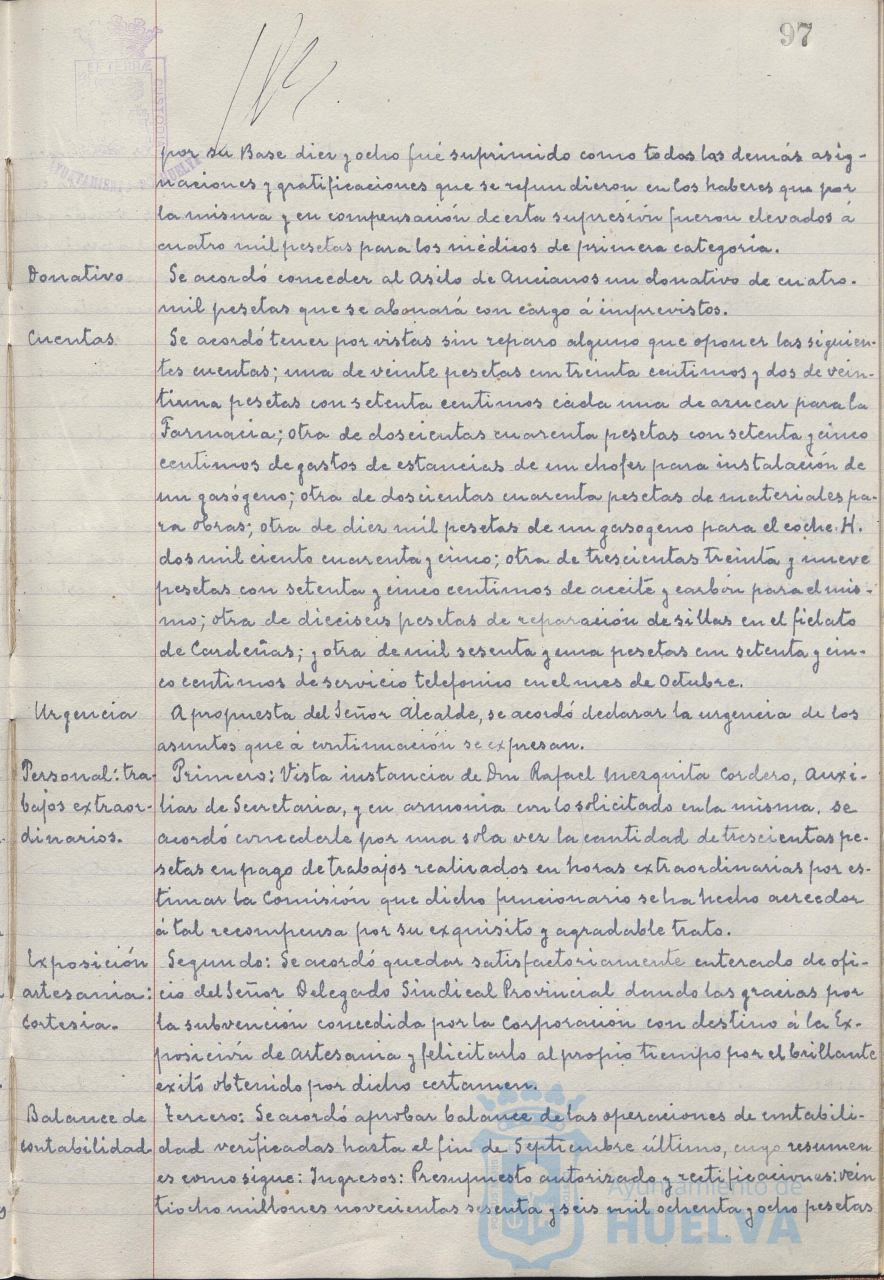 97
PORTUS MARIS ET TERRAE CUSTODIA
AYUNTAMIENTO HUELVA
por su Base diez y ocho fué suprimido como todas las demás asig-
naciones y gratificaciones que se refundieron en los haberes que por
la misma y en compensación de esta supresión fueron elevados á
cuatro mil pesetas para los médicos de primera categoria.
Donativo
Se acordó conceder al Asilo de Ancianos un donativo de cuatro.
mil pesetas que se abonará con cargo á imprevistos.
Cuentas
Se acordó tener por vistas sin reparo alguno que oponer las siguien-
tes cuentas; una de veinte pesetas con treinta centimos y dos de vein-
tiuna pesetas con setenta centimos cada una de azucar para la
Farmacia; otra de doscientas cuarenta pesetas con setenta y cinco
centimos de gastos de estancias de un chofer para instalación de
un gasógeno; otra de doscientas cuarenta pesetas de materiales pa-
ra obras; otra de diez mil pesetas de un gasogeno para el coche. H.
dos mil ciento cuarenta y cinco; otra de trescientas treinta y nueve
pesetas con setenta y cinco centimos de aceite y carbón para el mis-
mo; otra de dieciseis pesetas de reparación de sillas en el fielato
de Cardeñas; y otra de mil sesenta y una pesetas con setenta y cin-
co centimos de servicio telefonico en el mes de Octubre.
Urgencia
A propuesta del Señor Alcalde, se acordó declarar la urgencia de los
asuntos que á continuación se expresan.
Personal: tra-
bajos extraor-
dinarios.
Primero: Vista instancia de Don Rafael Mezquita Cordero, Auxi-
liar de Secretaria, y en armonia con lo solicitado en la misma, se
acordó concederle por una sola vez la cantidad de trescientas pe-
setas en pago de trabajos realizados en horas extraordinarias por es-
timar la Comisión que dicho funcionario se ha hecho acreedor
á tal recompensa por su exquisito y agradable trato.
Exposición
artesania:
cortesia.
Segundo: Se acordó quedar satisfactoriamente enterado de ofi-
cio del Señor Delegado Sindical Provincial dando las gracias por
la subvención concedida por la Corporación con destino á la Ex-
posición de Artesania y felicitarlo al propio tiempo por el brillante
exito obtenido por dicho certamen.
Balance de
contabilidad
Tercero: Se acordó aprobar balance de las operaciones de contabili-
dad verificadas hasta el fin de Septiembre último, cuyo resumen
es como sigue: Ingresos: Presupuesto autorizado y rectificaciones: vein
tiocho millones novecientas sesenta y seis mil ochenta y ocho pesetas
Ayuntamiento de
HUELVA